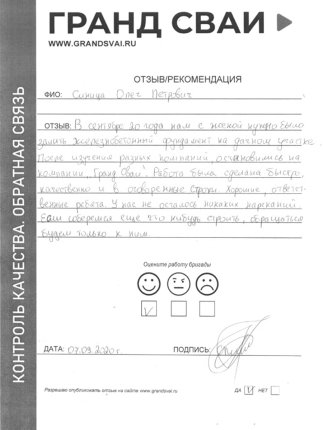 ГРАНД СВАИ
WWW.GRANDSVAI.RU
КОНТРОЛЬ КАЧЕСТВА. ОБРАТНАЯ СВЯЗЬ
ОТЗЫВ/РЕКОМЕНДАЦИЯ
ФИО: Синица Олег Петрович
ОТЗЫВ: В сентябре 20 года нам с женой нужно было
залить железобетонный фундамент на дачном участке.
После изучения разных компаний, остановились на
компании "Гранд Сваи". Работа была сделана быстро,
качественно и в оговоренные сроки. Хорошие, ответст-
венные ребята. У нас не осталось никаких нареканий.
Если соберемся еще что нибудь строить, обращаться
будем только к ним.
Оцените работу бригады
ДАТА: 07.09.2020г.
ПОДПИСЬ:
Разрешаю опубликовать отзыв на сайте www.grandsvai.ru
ДА НЕТ